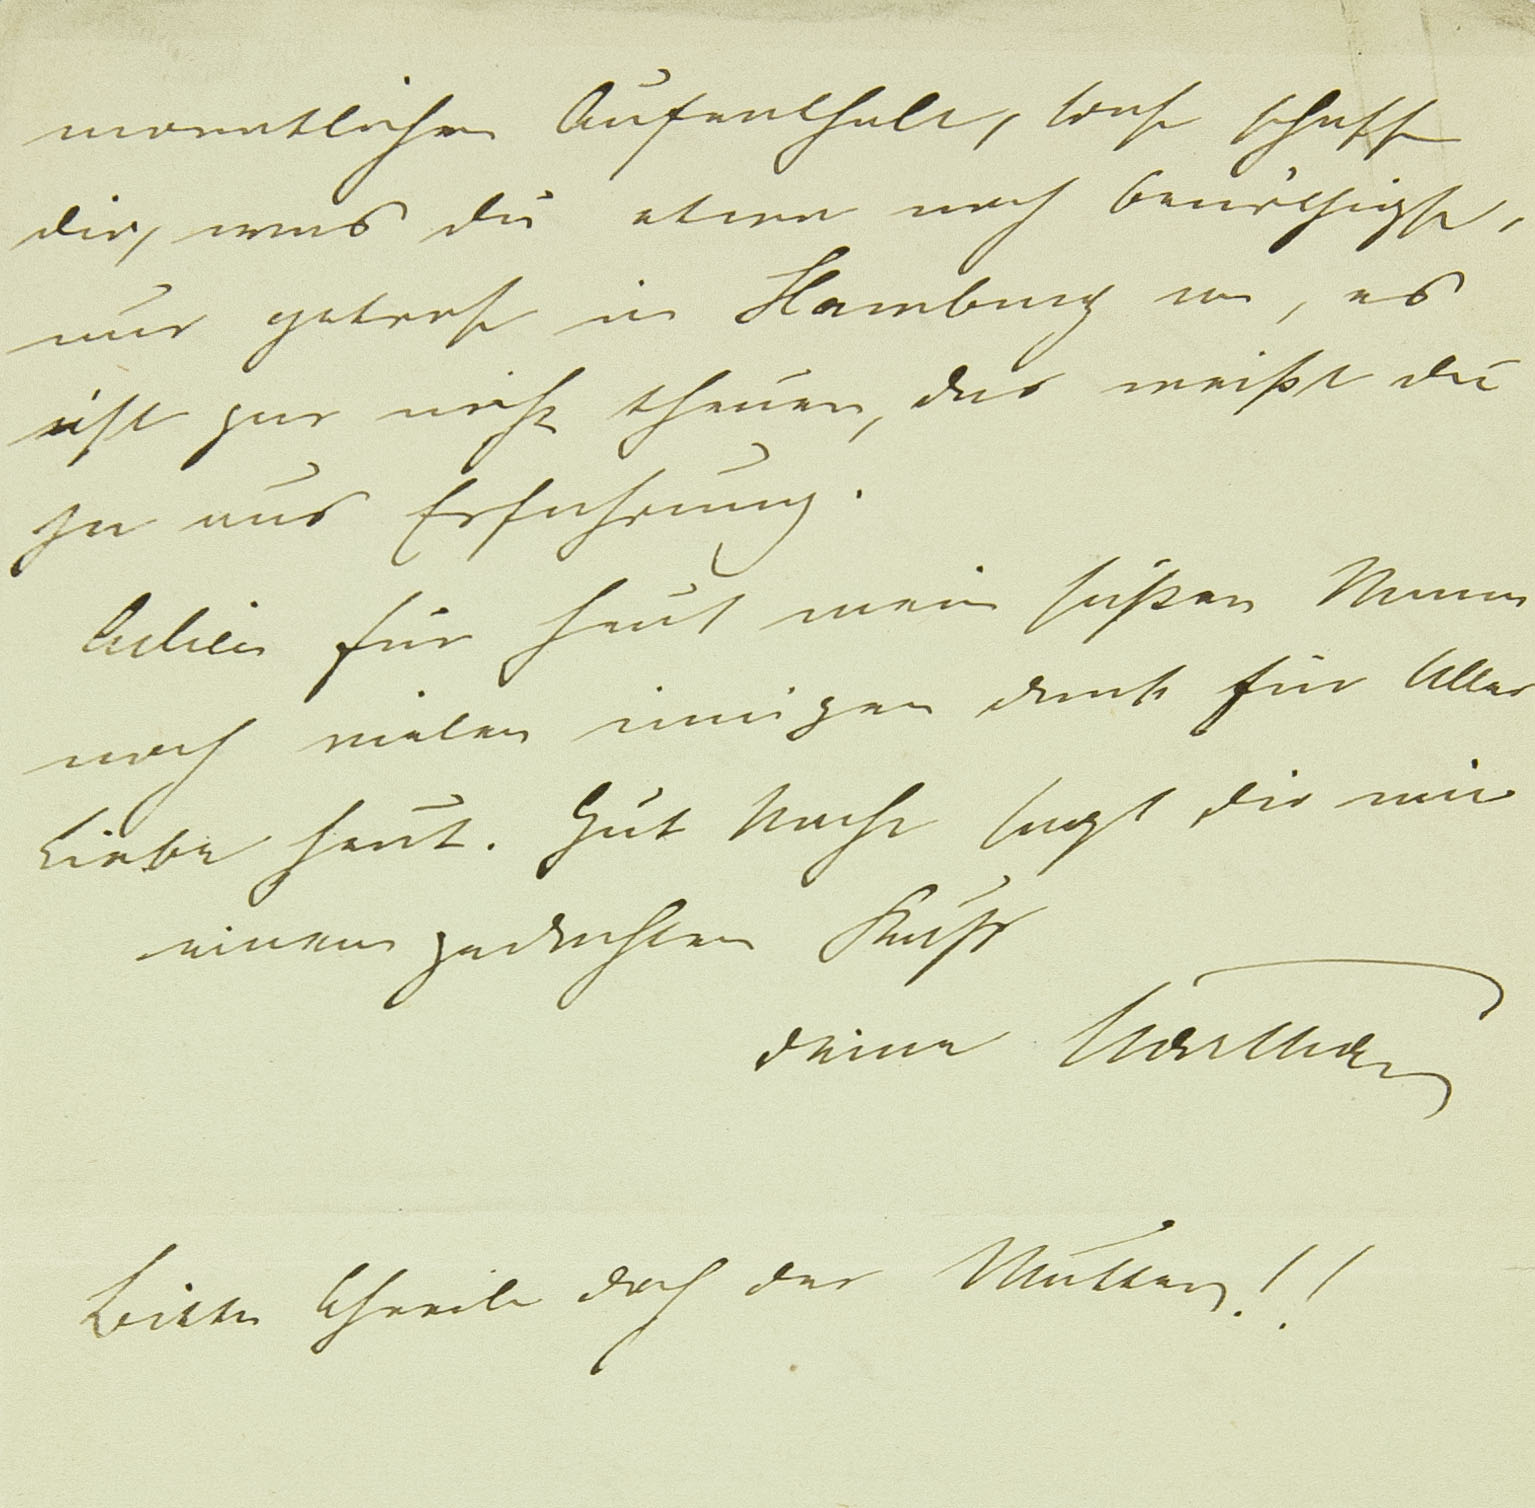 monatlichen Aufenthalt, sonst schaffe
dir, was du etwa noch benöthigst,
nur getrost in Hamburg an, es
ist gar nicht theuer, das weißt du
ja aus Erfahrung.
Adieu für heut mein süßer Mann
noch vielen innigen dank für Alles
Liebe heut. Gut Nacht sagt dir mit
einem gedachten Kuße
deine
Bitte schreib doch der Mutter!!